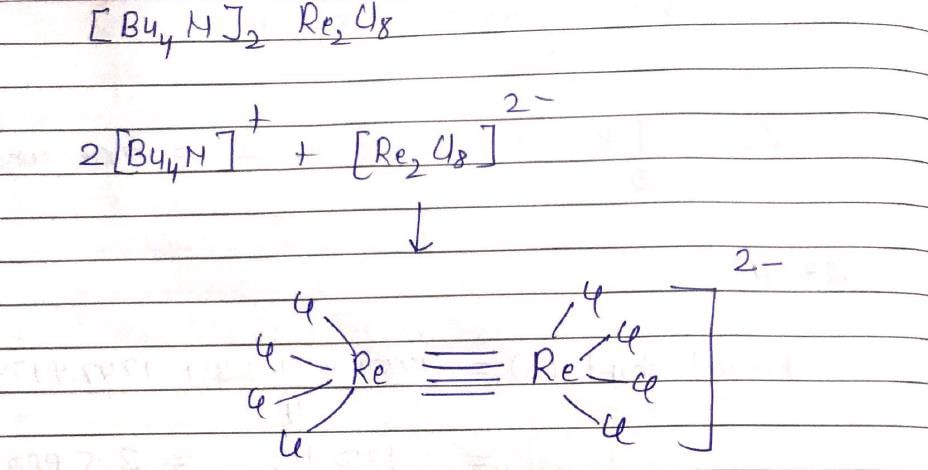 [Bu₄N]₂ Re₂Cl₈
2[Bu₄N]⁺ + [Re₂Cl₈]²⁻
↓
2−
Cl Cl
Cl Cl
Re ≣ Re
Cl Cl
Cl Cl